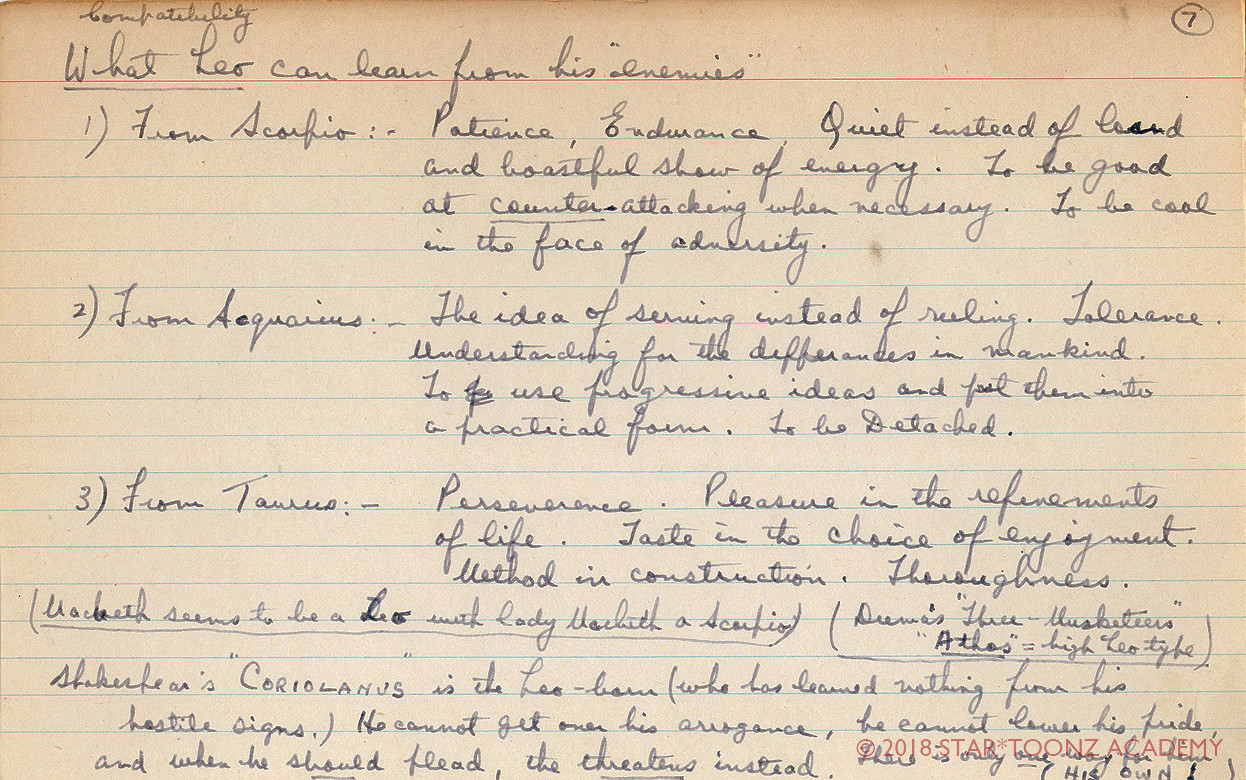 Compatibility
7
What Leo can learn from his "enemies"
1) From Scorpio :- Patience, Endurance, Quiet instead of loud
and boastful show of energy. To be good
at counter-attacking when necessary. To be cool
in the face of adversity.
2) From Acquarius :- The idea of serving instead of ruling. Tolerance.
Understanding for the differances in mankind.
To use progressive ideas and put them into
a practical form. To be Detached.
3) From Taurus :- Perseverence. Pleasure in the refinements
of life. Taste in the choice of enjoyment.
Method in construction. Thoroughness.
(Macbeth seems to be a Leo with lady Macbeth a Scorpio) (Duma's "Three-Musketeers"
"Athos" = high Leo type)
Shakespear's "CORIOLANUS" is the Leo-born (who has learned nothing from his
hostile signs.) He cannot get over his arrogance, he cannot lower his pride,
and when he should plead, the threatens instead. There is only one way for him
(HIS OWN!)
© 2018 STAR*TOONZ ACADEMY